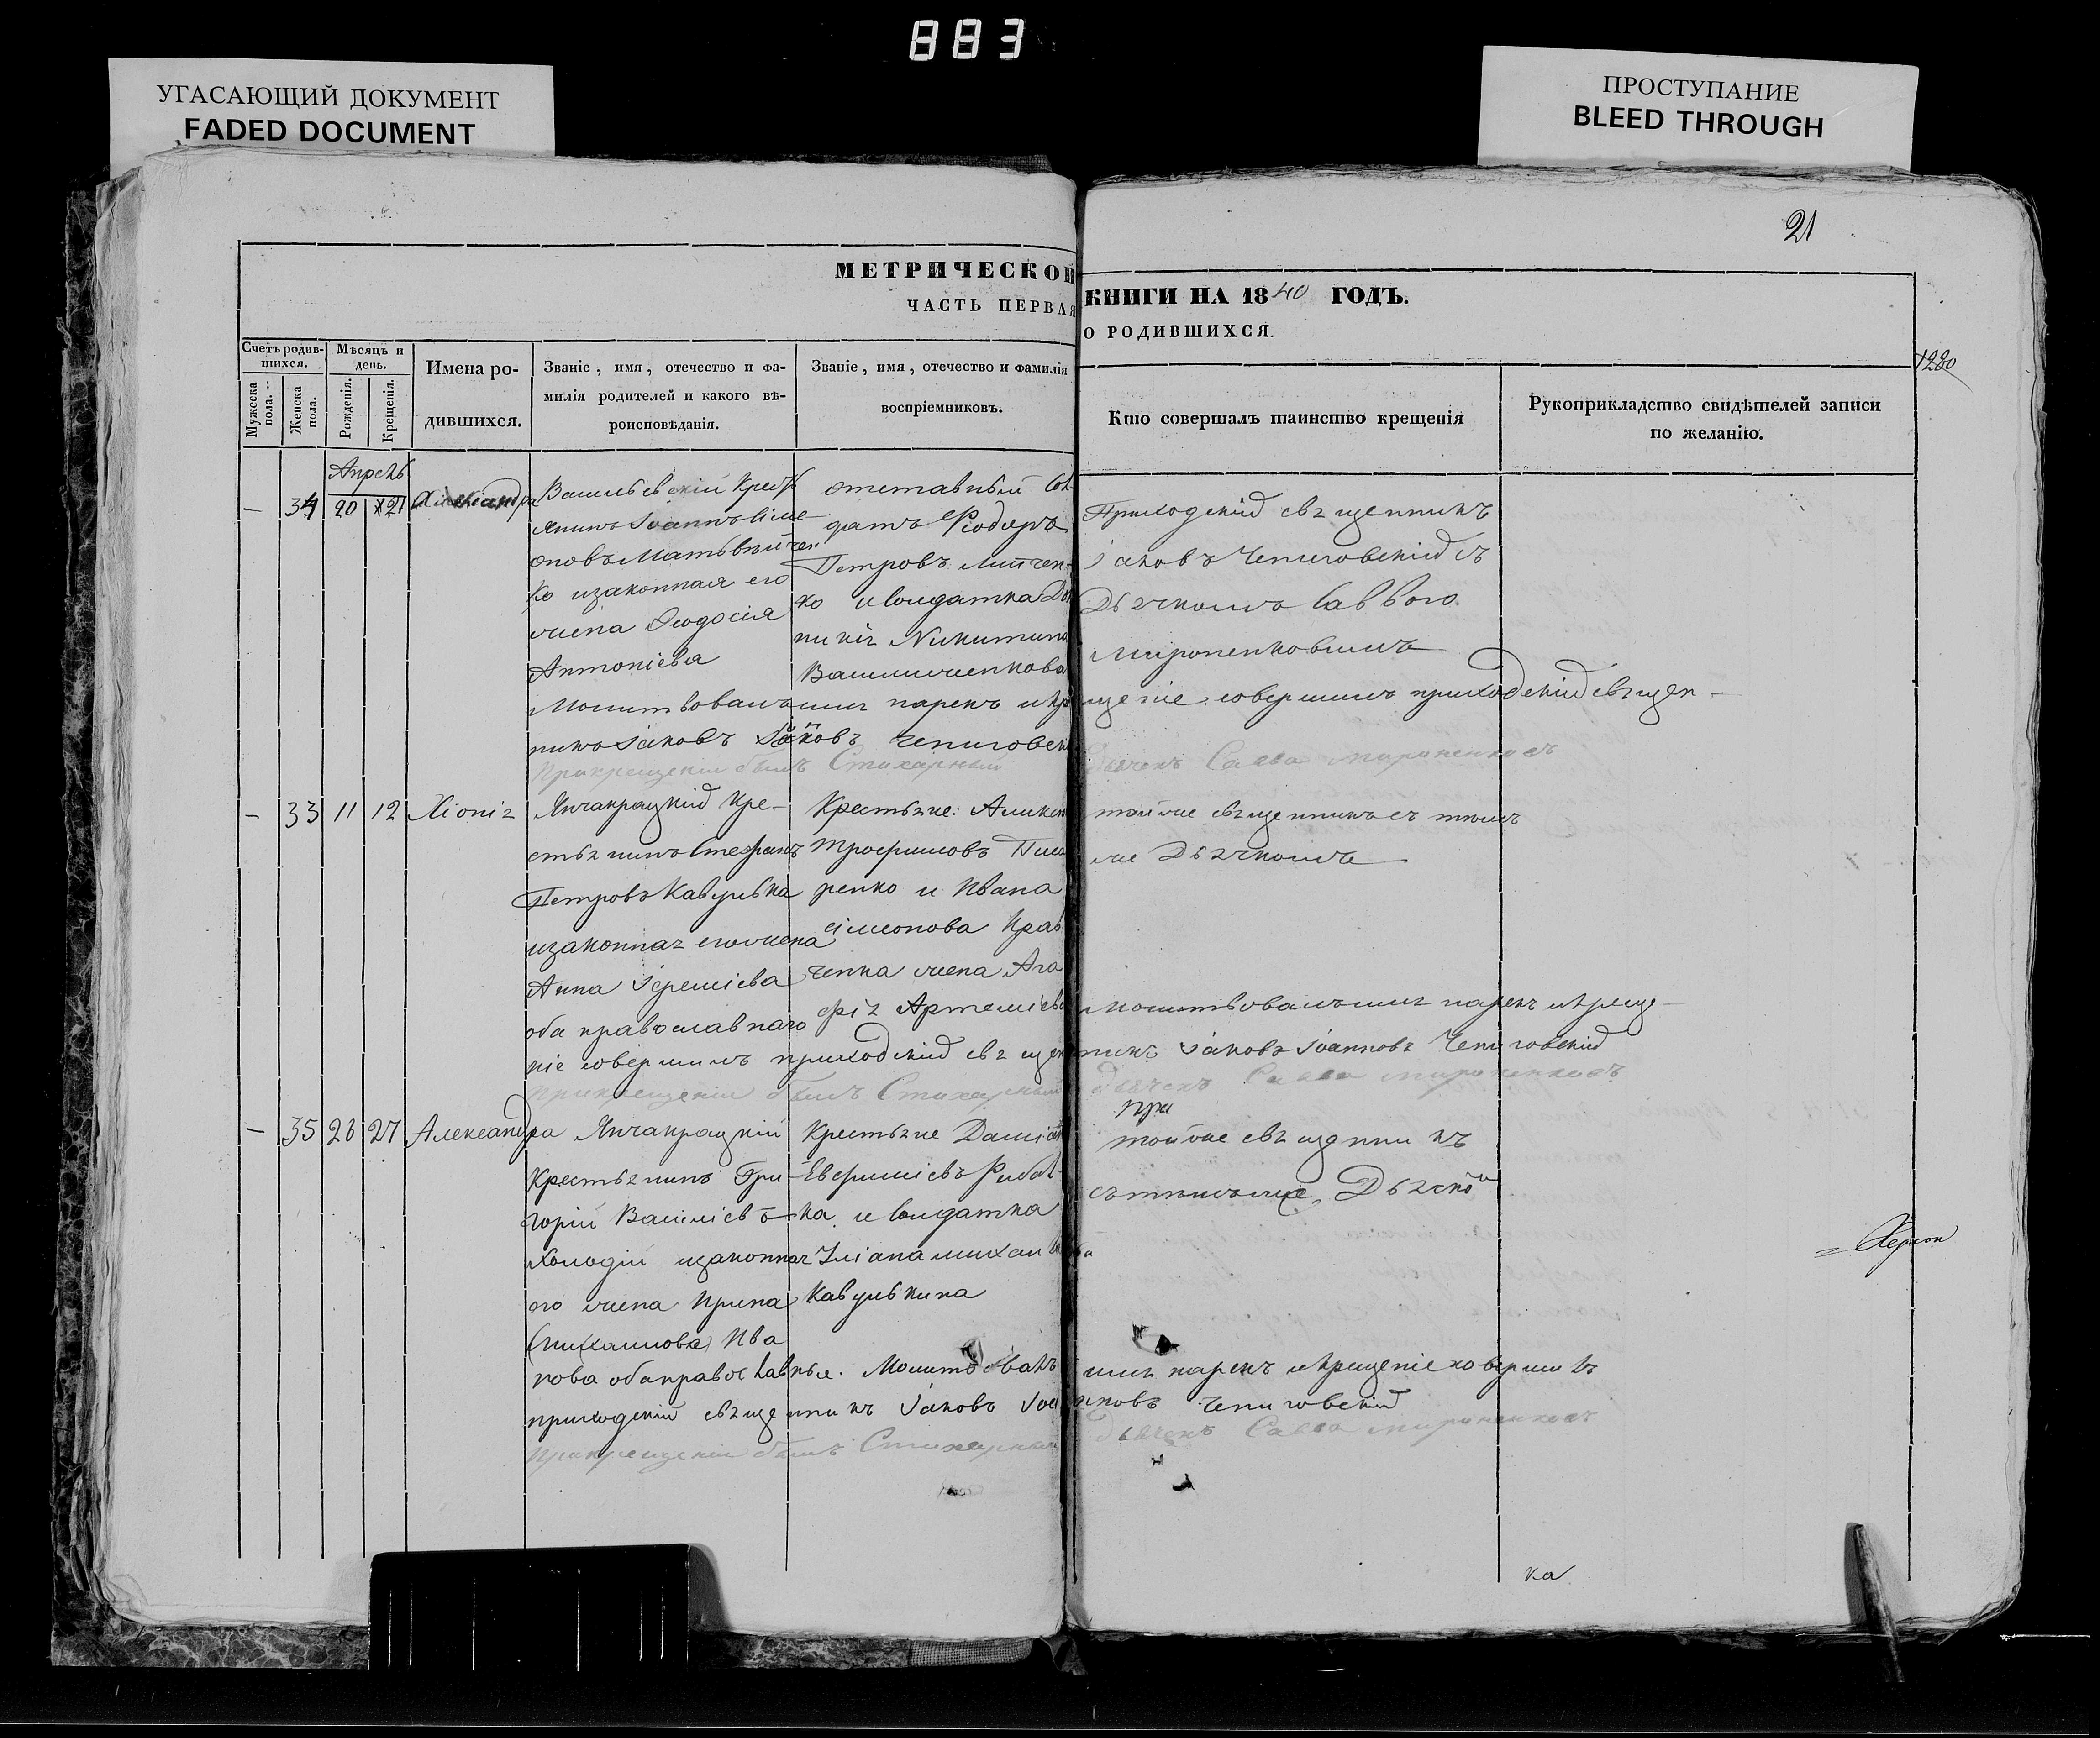 883
УГАСАЮЩИЙ ДОКУМЕНТ
FADED DOCUMENT
ПРОСТУПАНИЕ
BLEED THROUGH
21
МЕТРИЧЕСКОЙ КНИГИ НА 1840 ГОДЪ.
ЧАСТЬ ПЕРВАЯ О РОДИВШИХСЯ.
1280
Счетъ родив-
шихся.
Мужеска
пола.
Женска
пола.
Мѣсяцъ и
день.
Рожденія.
Крещенія.
Имена ро-
дившихся.
Званіе, имя, отечество и фа-
милія родителей и какого вѣ-
роисповѣданія.
Званіе, имя, отечество и фамилія
воспріемниковъ.
Кто совершалъ таинство крещенія
Рукоприкладство свидѣтелей записи
по желанію.
Апрель
— 34 20 21 Александра
Васильевскій Кресть
янинъ Іоаннъ Симе
оновъ Матвѣйчен
ко изаконная его
жена Ѳеодосія
Антоніева
отставный Сол
датъ Ѳеодоръ
Петровъ
ко исолдатка
Никитина
Приходскій священникъ
Іаковъ Чепиговскій съ
Дьячкомъ Саввою
Мироненковымъ
Молитвовалъ имя нарекъ икре щеніе совершилъ приходскій священ-
никъ Іаковъ Чепиговск
Прикрещеніи былъ Стихарный Дьячекъ Савва Мироненковъ
— 33 11 12 Хіонія
Янчакрацкій Кре-
стьянинъ Стефанъ
Петровъ Кавунька
изаконная его жена
Анна Іереміева
оба православнаго
Крестьяне: Алексѣ
Трофимовъ Писа
ренко и Ивана
Симонова Крав
ченка жена Ага
фія Артеміева
тойже священникъ съ тѣмъ
же Дьячкомъ
Молитвовалъ имя нарекъ икреще-
ніе совершилъ приходскій священникъ Іаковъ Іоанновъ Чепиговскій
прикрещеніи былъ Стихарный Дьячекъ Савва Мироненковъ
— 35 26 27 Александра
Янчакрацкій
Крестьянинъ Гри
горій Василіевъ
Холодій изаконная
его жена Ирина
(Михаилова) Ива
нова оба православные.
Крестьяне Даміанъ
Евфиміевъ Рибал
ка и солдатка
Уліана Михаилова
Кавунькина
при
тойже священникъ
съ тѣмъ же Дьячком
Херсон
Молитвовалъ имя нарекъ икрещеніе совершилъ
приходскій священникъ Іаковъ Іоанновъ Чепиговскій
Прикрещеніи былъ Стихарный Дьячекъ Савва Мироненковъ
ка